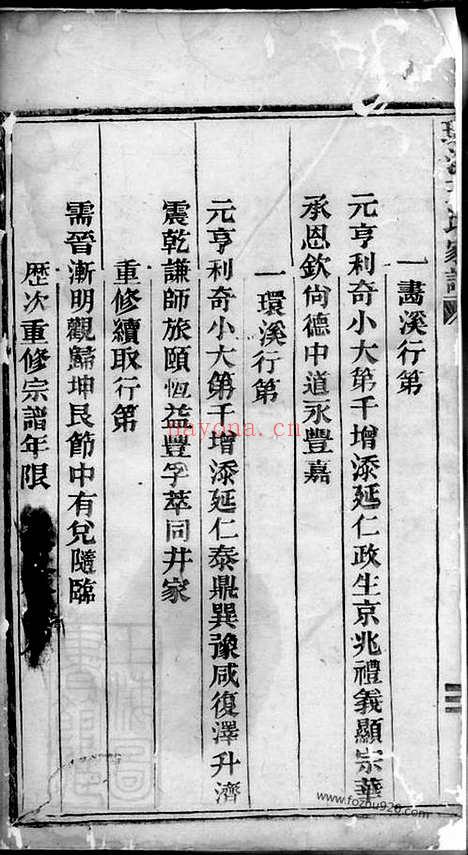 一畵溪行第
元亨利奇小大第千增添延仁政生京兆禮義顯宗華
承恩欽尙德中道永豐嘉
一環溪行第
元亨利奇小大第千增添延仁泰鼎巽豫咸復澤升濟
震乾謙師旅頤恆益豐孚萃同井家
重修續取行第
需晉漸明觀歸坤艮節中有兌隨臨
歷次重修宗譜年限
nayona.cn
www.fozhu920.com